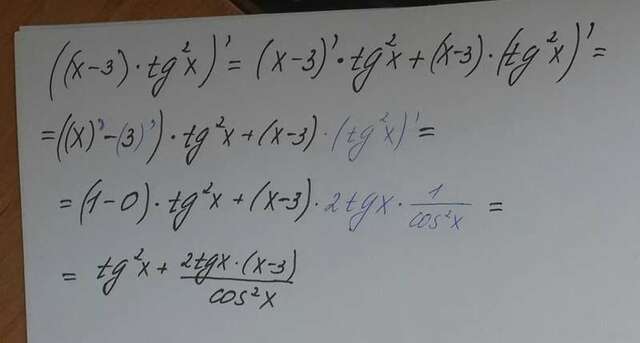 ((x-3)·tg²x)' = (x-3)'·tg²x+(x-3)·(tg²x)' =
=((x)'-(3)')·tg²x+(x-3)·(tg²x)'=
= (1-0)·tg²x+(x-3)·2tgx·1/cos²x =
= tg²x+2tgx·(x-3)/cos²x